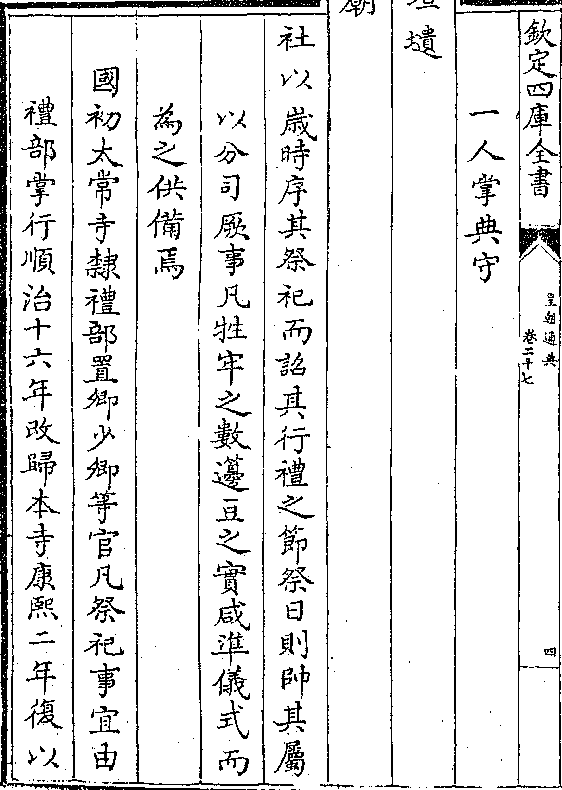 欽定四庫全書
皇朝通典
卷二十七
四
一人掌典守
壇壝
廟
社以歲時序其祭祀而詔其行禮之節祭日則帥其屬
以分司厥事凡牲牢之數籩豆之實咸準儀式而
為之供備焉
國初太常寺隸禮部置卿少卿等官凡祭祀事宜由
禮部掌行順治十六年改歸本寺康熙二年復以